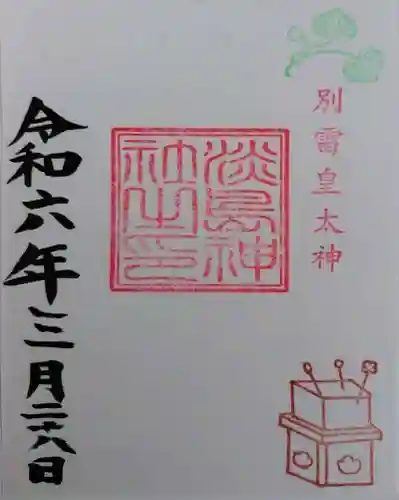 別雷皇太神
淡嶌神
社之印
令和六年三月二十八日